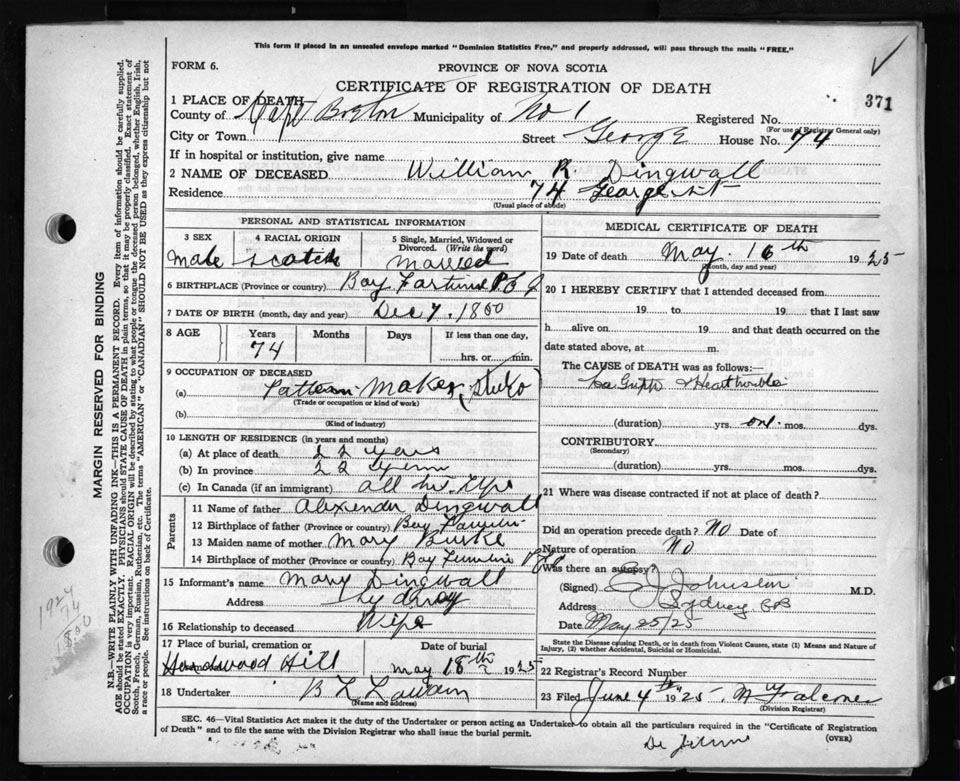 This form if placed in an unsealed envelope marked "Dominion Statistics Free," and properly addressed, will pass through the mails "FREE."
FORM 6.
PROVINCE OF NOVA SCOTIA
CERTIFICATE OF REGISTRATION OF DEATH
371
1 PLACE OF DEATH
County of Cape Breton Municipality of No 1 Registered No.
(For use of Registrar General only)
City or Town Street George House No. 74
If in hospital or institution, give name
2 NAME OF DECEASED William R. Dingwall
Residence 74 George St
(Usual place of abode)
PERSONAL AND STATISTICAL INFORMATION
3 SEX Male
4 RACIAL ORIGIN Scotch
5 Single, Married, Widowed or Divorced. (Write the word) Married
6 BIRTHPLACE (Province or country) Bay Fortune P E I
7 DATE OF BIRTH (month, day and year) Dec 7, 1850
8 AGE Years 74 Months Days If less than one day, hrs. or min.
9 OCCUPATION OF DECEASED
(a) Pattern Maker
(Trade or occupation or kind of work)
(b)
(Kind of industry)
10 LENGTH OF RESIDENCE (in years and months)
(a) At place of death 22 years
(b) In province 22 years
(c) In Canada (if an immigrant) all his life
Parents
11 Name of father Alexender Dingwall
12 Birthplace of father (Province or country) Bay
13 Maiden name of mother Mary Burke
14 Birthplace of mother (Province or country) Bay
15 Informant's name Mary Dingwall
Address Sydney
16 Relationship to deceased Wife
17 Place of burial, cremation or Hardwood Hill
Date of burial May 18th 1925
18 Undertaker B L
(Name and address)
MEDICAL CERTIFICATE OF DEATH
19 Date of death May 16th 1925
(Month, day and year)
20 I HEREBY CERTIFY that I attended deceased from
19 to 19 that I last saw
h alive on 19 and that death occurred on
date stated above, at m.
The CAUSE of DEATH was as follows:—
La Grippe & Heart trouble
(duration) yrs. one mos. dys.
CONTRIBUTORY
(Secondary)
(duration) yrs. mos. dys.
21 Where was disease contracted if not at place of death?
Did an operation precede death? No Date of
Nature of operation No
Was there an autopsy?
(Signed) Johnston M.D.
Address Sydney CB
Date May 25/25
State the Disease causing Death, or in death from Violent Causes, state (1) Means and Nature of Injury, (2) whether Accidental, Suicidal or Homicidal.
22 Registrar's Record Number
23 Filed June 4th 1925
(Division Registrar)
SEC. 46—Vital Statistics Act makes it the duty of the Undertaker or person acting as Undertaker to obtain all the particulars required in the "Certificate of Registration
of Death" and to file the same with the Division Registrar who shall issue the burial permit.
(OVER)
MARGIN RESERVED FOR BINDING
N.B.—WRITE PLAINLY WITH UNFADING INK—THIS IS A PERMANENT RECORD. Every item of information should be carefully supplied.
AGE should be stated EXACTLY. PHYSICIANS should STATE CAUSE OF DEATH in plain terms, so that it may be properly classified. Exact statement of
OCCUPATION is very important. RACIAL ORIGIN will be described by stating to what people or tongue the deceased person belonged, whether English, Irish,
Scotch, French, German, Russian, Ruthenian, etc. The terms "AMERICAN" or "CANADIAN" SHOULD NOT BE USED as they express citizenship but not
a race or people. See instructions on back of Certificate.
1924
74
1850